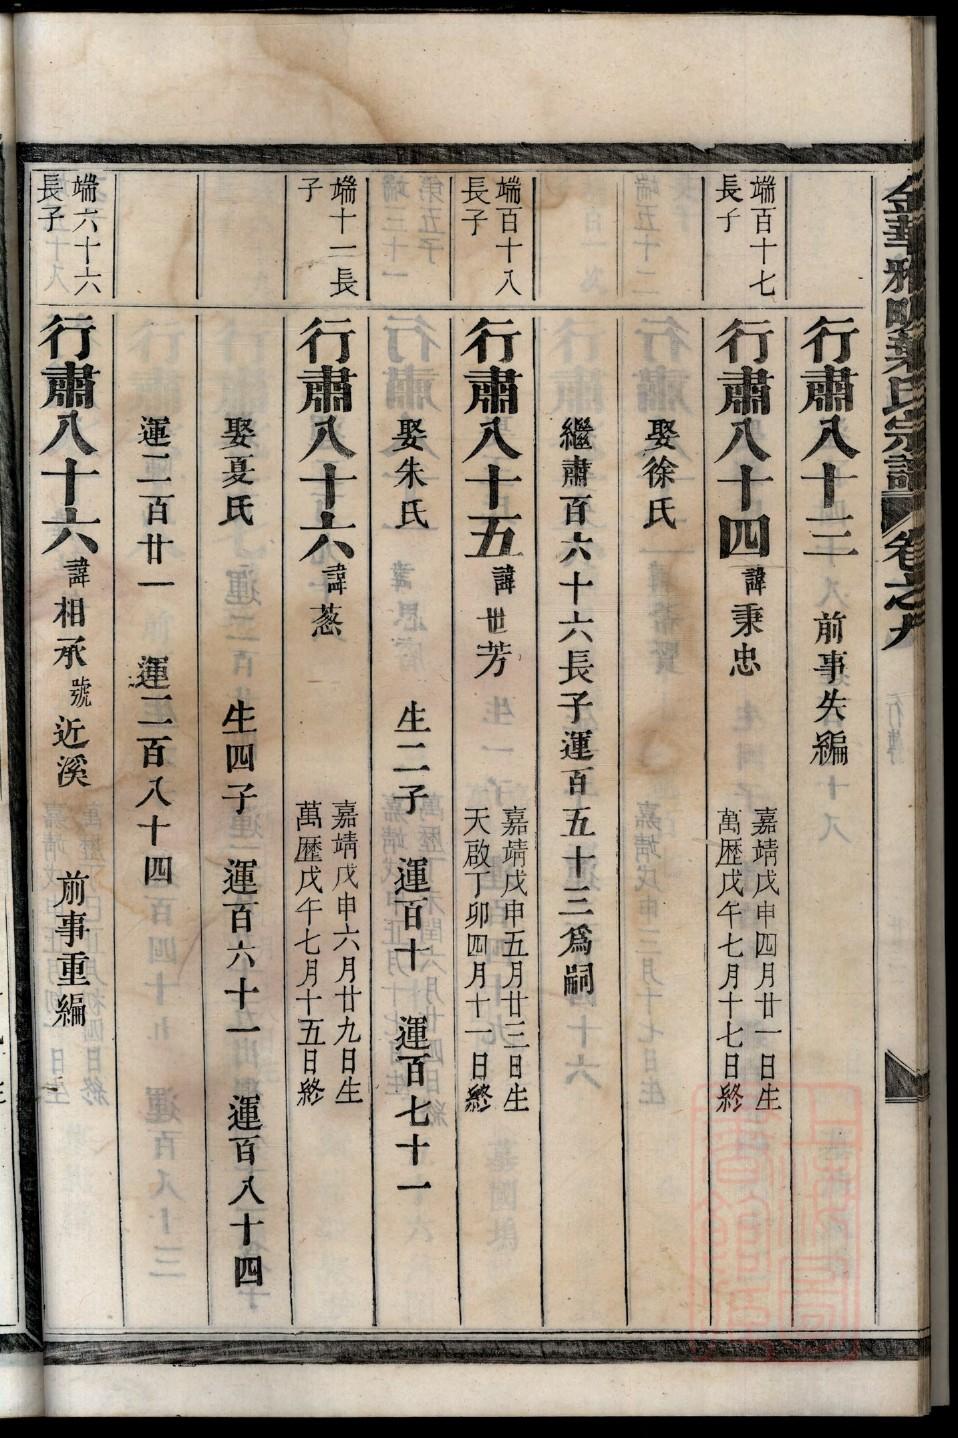 金華雅畈葉氏宗譜 卷之九 行傳
行肅八十三 前事失編
端百十七
長子
行肅八十四 諱秉忠
嘉靖戊申四月廿一日生
萬歷戊午七月十七日終
娶徐氏
繼肅百六十六長子運百五十三爲嗣
端百十八
長子
行肅八十五 諱世芳
嘉靖戊申五月廿三日生
天啟丁卯四月十一日終
娶朱氏 生二子 運百十 運百七十一
端十二長
子
行肅八十六 諱葱
嘉靖戊申六月廿九日生
萬歷戊午七月十五日終
娶夏氏 生四子 運百六十一 運百八十四
運二百廿一 運二百八十四
端六十六
長子
行肅八十六 諱相承 號近溪 前事重編